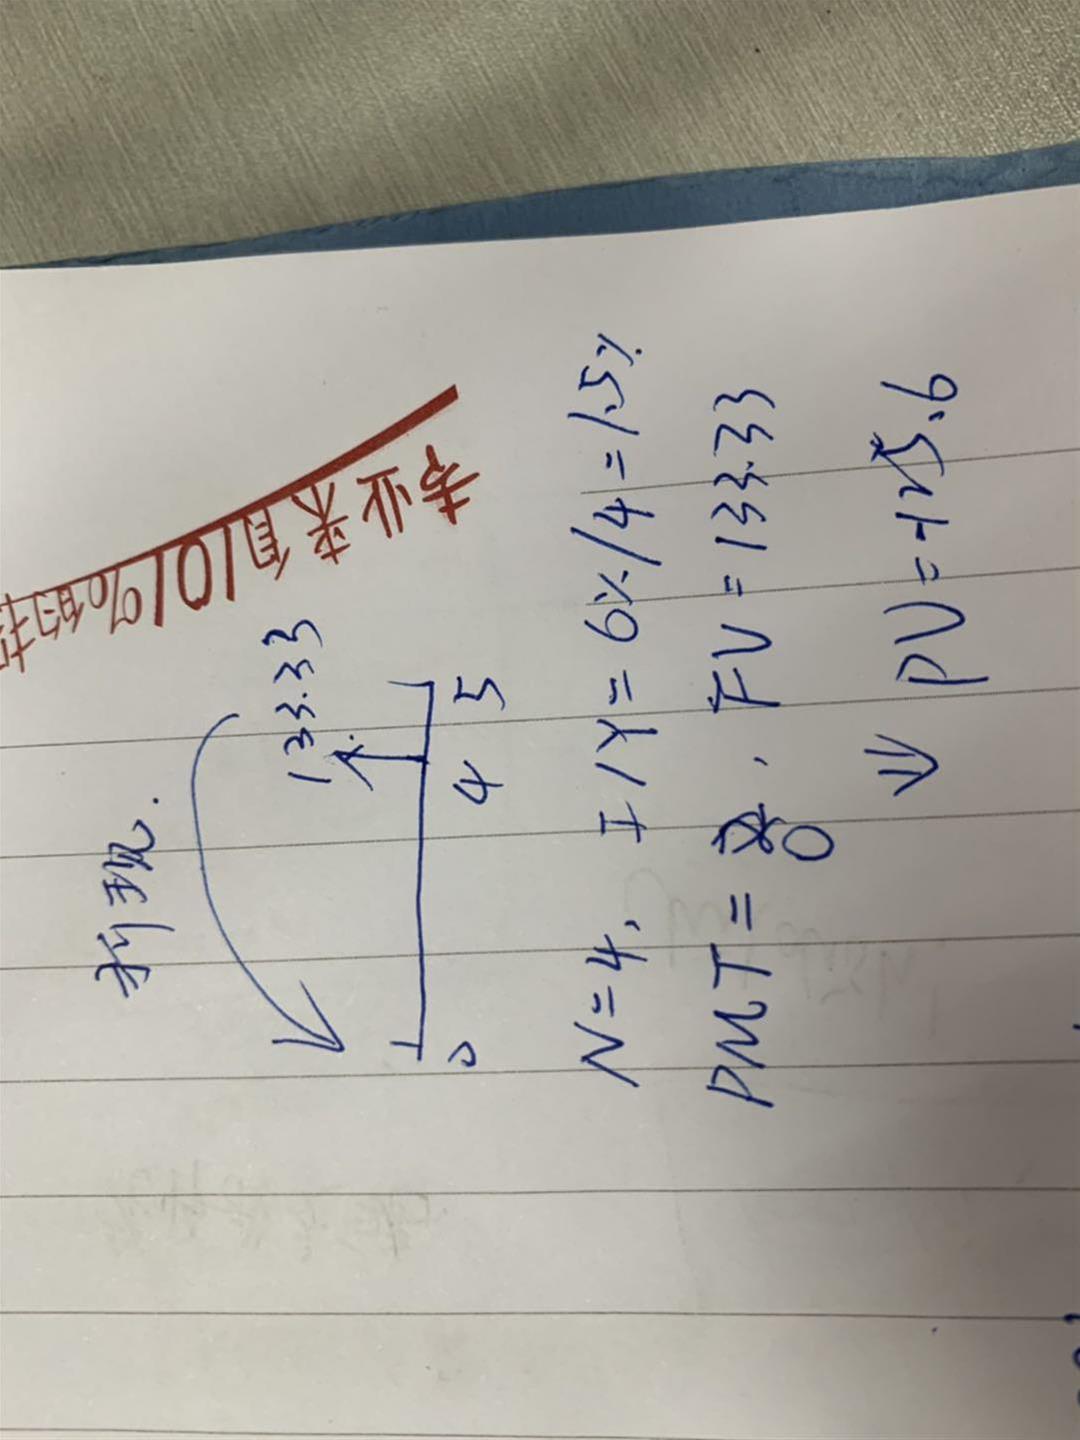 专业来自101%的投
折现.
133.33
0 4 5
N=4, I/Y=6%/4=1.5%
PMT=0, FV=133.33
⇒ PV=-125.6